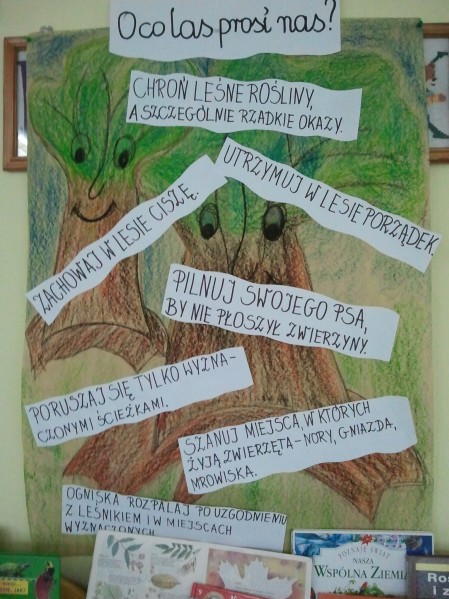 O co las prosi nas?
CHROŃ LEŚNE ROŚLINY,
A SZCZEGÓLNIE RZADKIE OKAZY.
UTRZYMUJ W LESIE PORZĄDEK.
ZACHOWAJ W LESIE CISZĘ.
PILNUJ SWOJEGO PSA,
BY NIE PŁOSZYŁ ZWIERZYNY.
PORUSZAJ SIĘ TYLKO WYZNA-
CZONYMI ŚCIEŻKAMI.
SZANUJ MIEJSCA, W KTÓRYCH
ŻYJĄ ZWIERZĘTA - NORY, GNIAZDA,
MROWISKA.
OGNISKA ROZPALAJ PO UZGODNIENIU
Z LEŚNIKIEM I W MIEJSCACH
WYZNACZONYCH
POZNAJĘ ŚWIAT
NASZA
WSPÓLNA ZIEMIA
Ros
i z